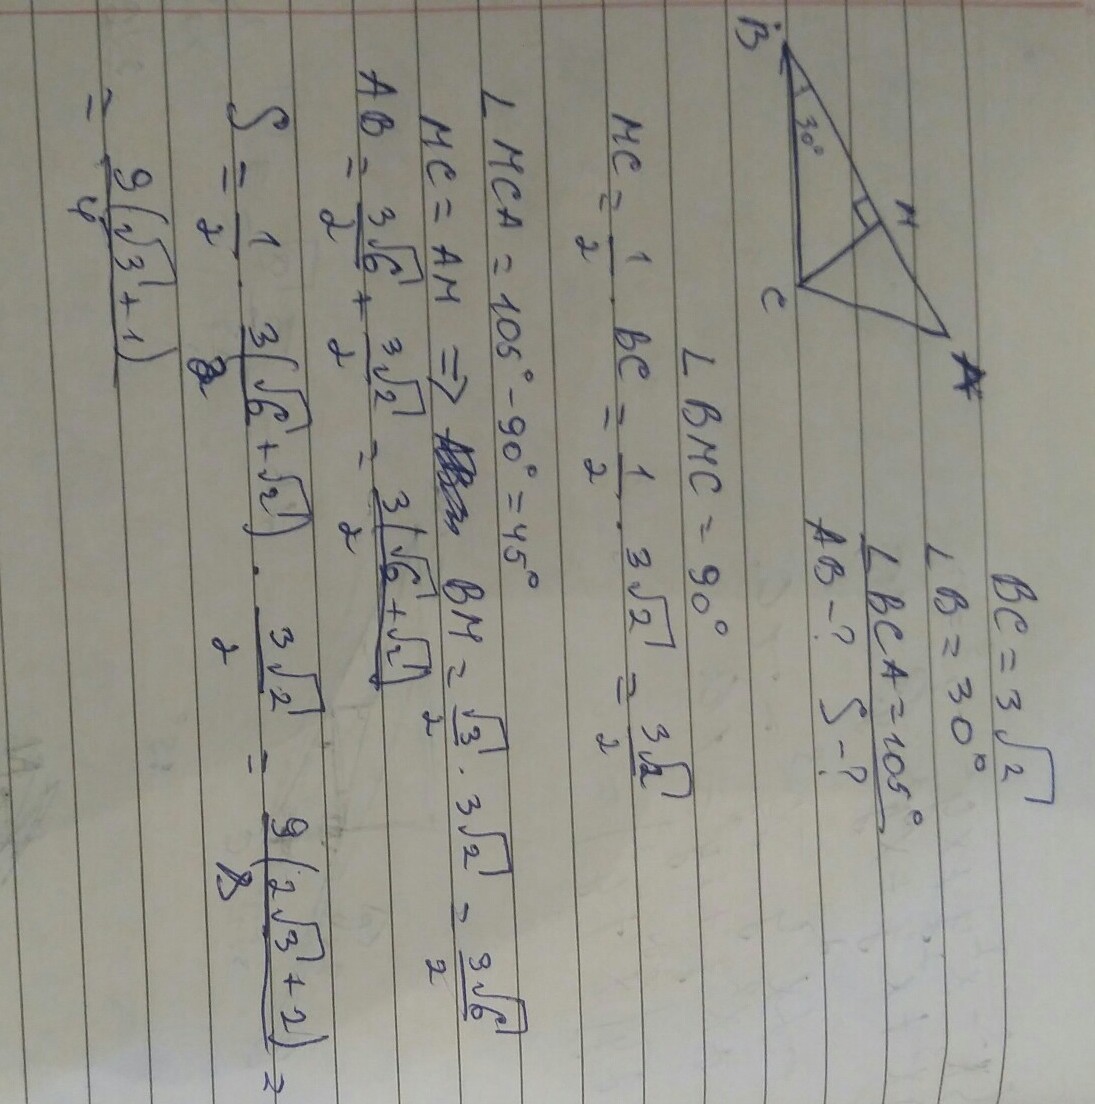 B
30°
M
C
A
BC = 3√2
∠B = 30°
∠BCA = 105°
AB - ? S - ?
∠BMC = 90°
MC = 1/2 · BC = 1/2 · 3√2 = 3√2/2
∠MCA = 105° - 90° = 45°
MC = AM => BM = √3/2 · 3√2 = 3√6/2
AB = 3√6/2 + 3√2/2 = 3(√6 + √2)/2
S = 1/2 · 3(√6 + √2)/2 · 3√2/2 = 9(2√3 + 2)/8 =
= 9(√3 + 1)/4